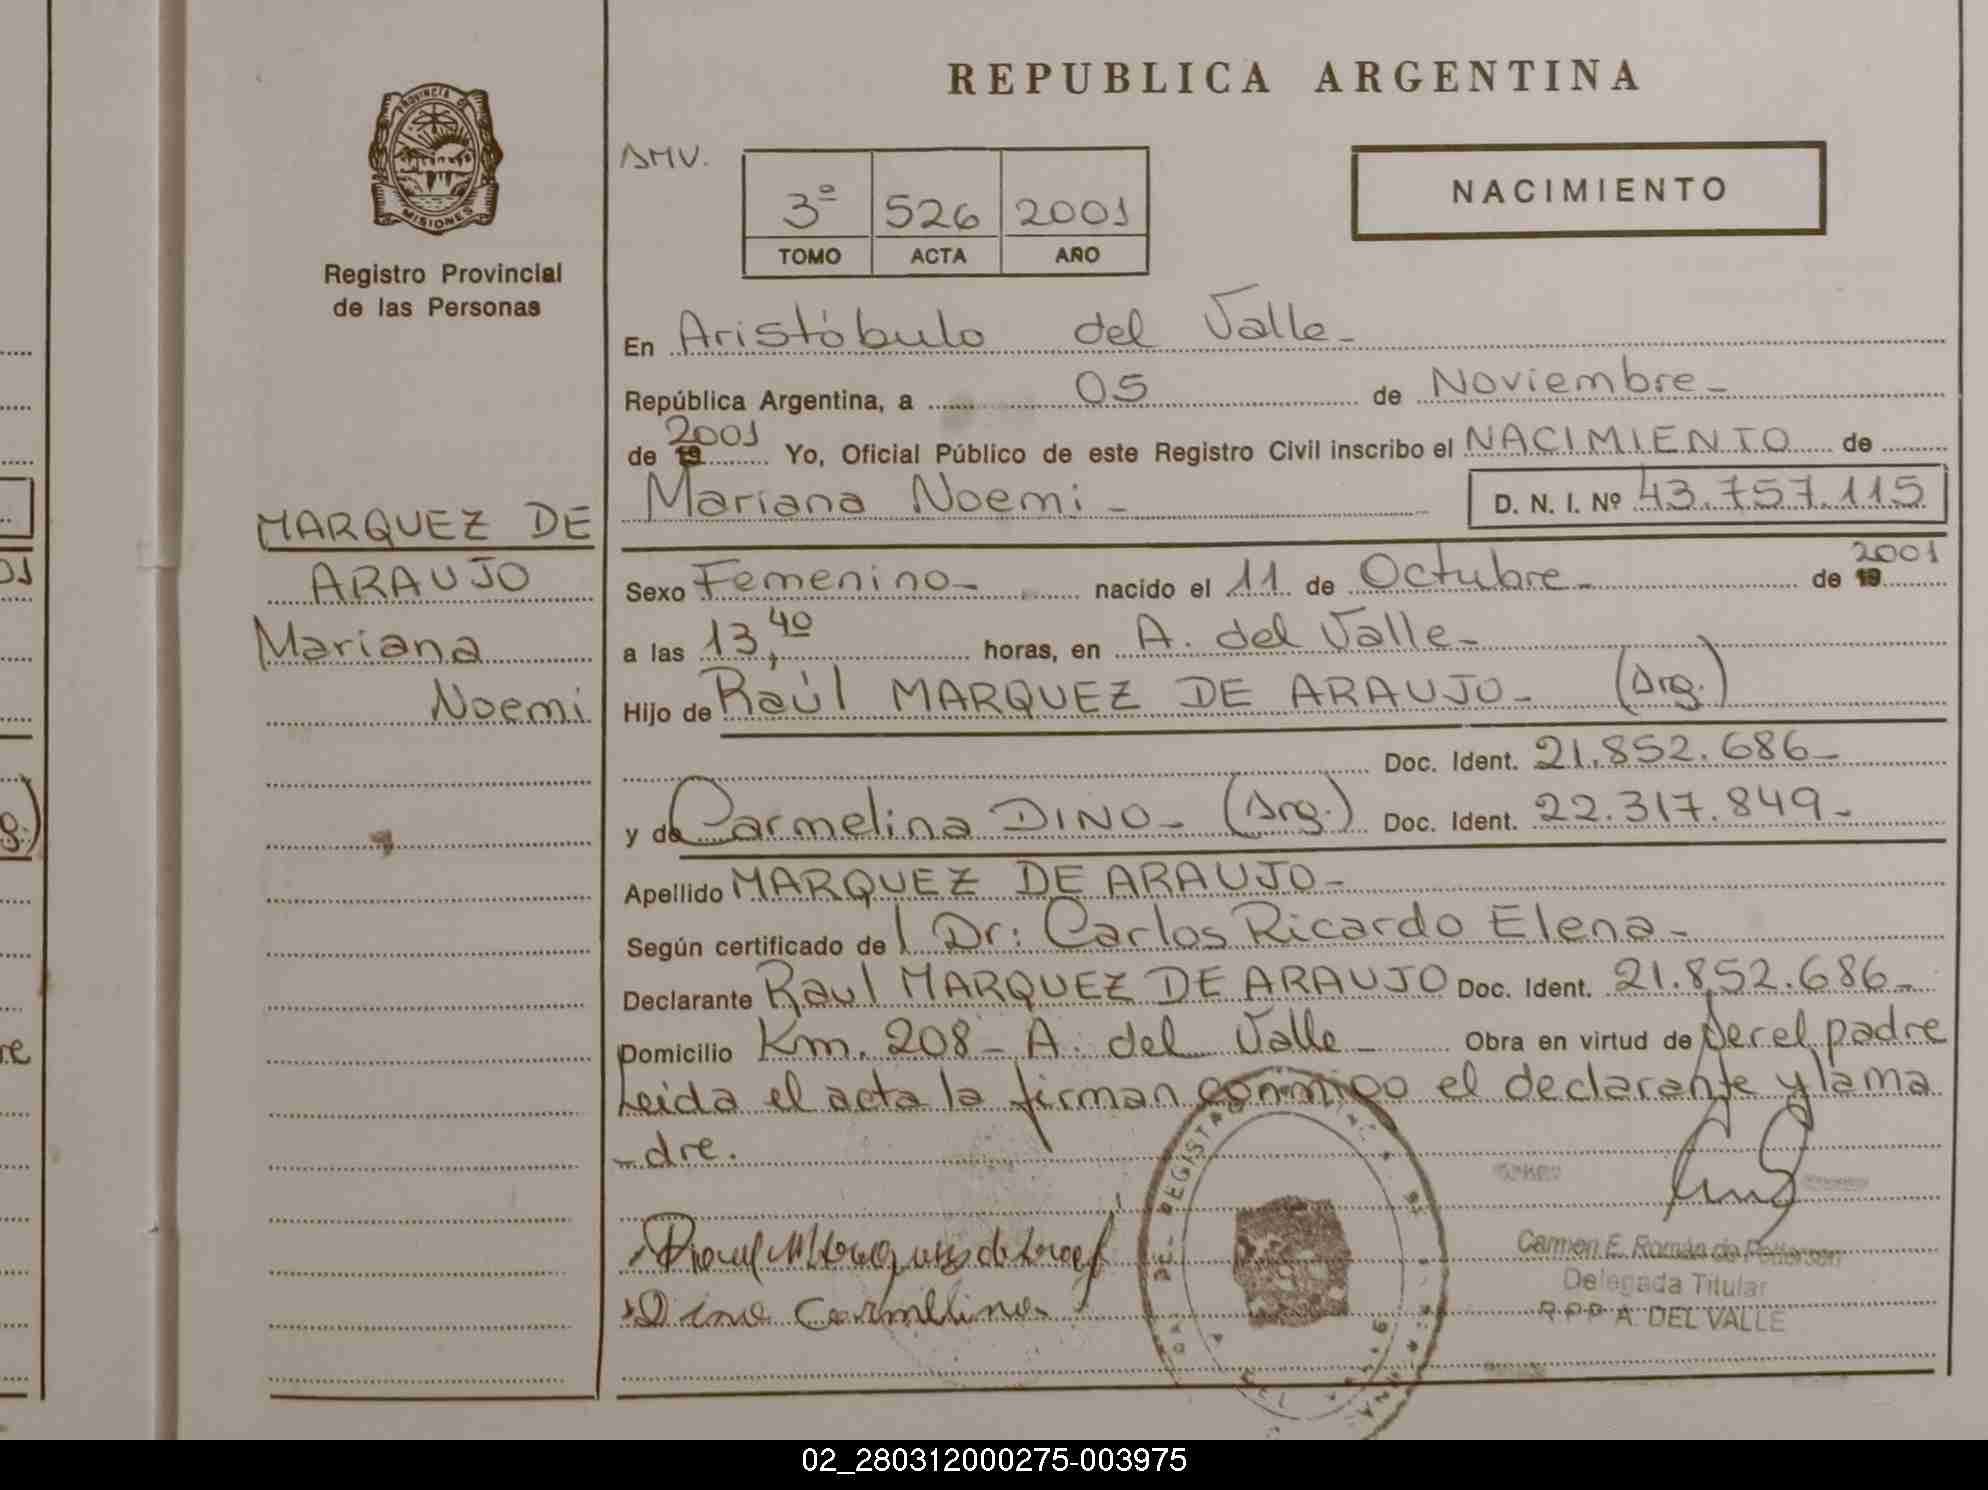 REPUBLICA ARGENTINA
PROVINCIA DE
MISIONES
Registro Provincial
de las Personas
3º 526 2001
TOMO ACTA AÑO
NACIMIENTO
En Aristóbulo del Valle-
República Argentina, a 05 de Noviembre-
de 19 2001 Yo, Oficial Público de este Registro Civil inscribo el NACIMIENTO de
Mariana Noemi - D. N. I. Nº 43.757.115
MARQUEZ DE
ARAUJO
Mariana
Noemi
Sexo Femenino- nacido el 11 de Octubre- de 19 2001
a las 13,40 horas, en A. del Valle-
Hijo de Raúl MARQUEZ DE ARAUJO- (Arg.)
Doc. Ident. 21.852.686-
y de Carmelina DINO- (Arg.) Doc. Ident. 22.317.849-
Apellido MARQUEZ DE ARAUJO-
Según certificado de l Dr: Carlos Ricardo Elena-
Declarante Raul MARQUEZ DE ARAUJO Doc. Ident. 21.852.686-
Domicilio Km. 208- A. del Valle- Obra en virtud de ser el padre
Leida el acta la firman conmigo el declarante y la ma
-dre.
Dino Carmelina
Carmen E. Román de
Delegada Titular
A. DEL VALLE
02_280312000275-003975